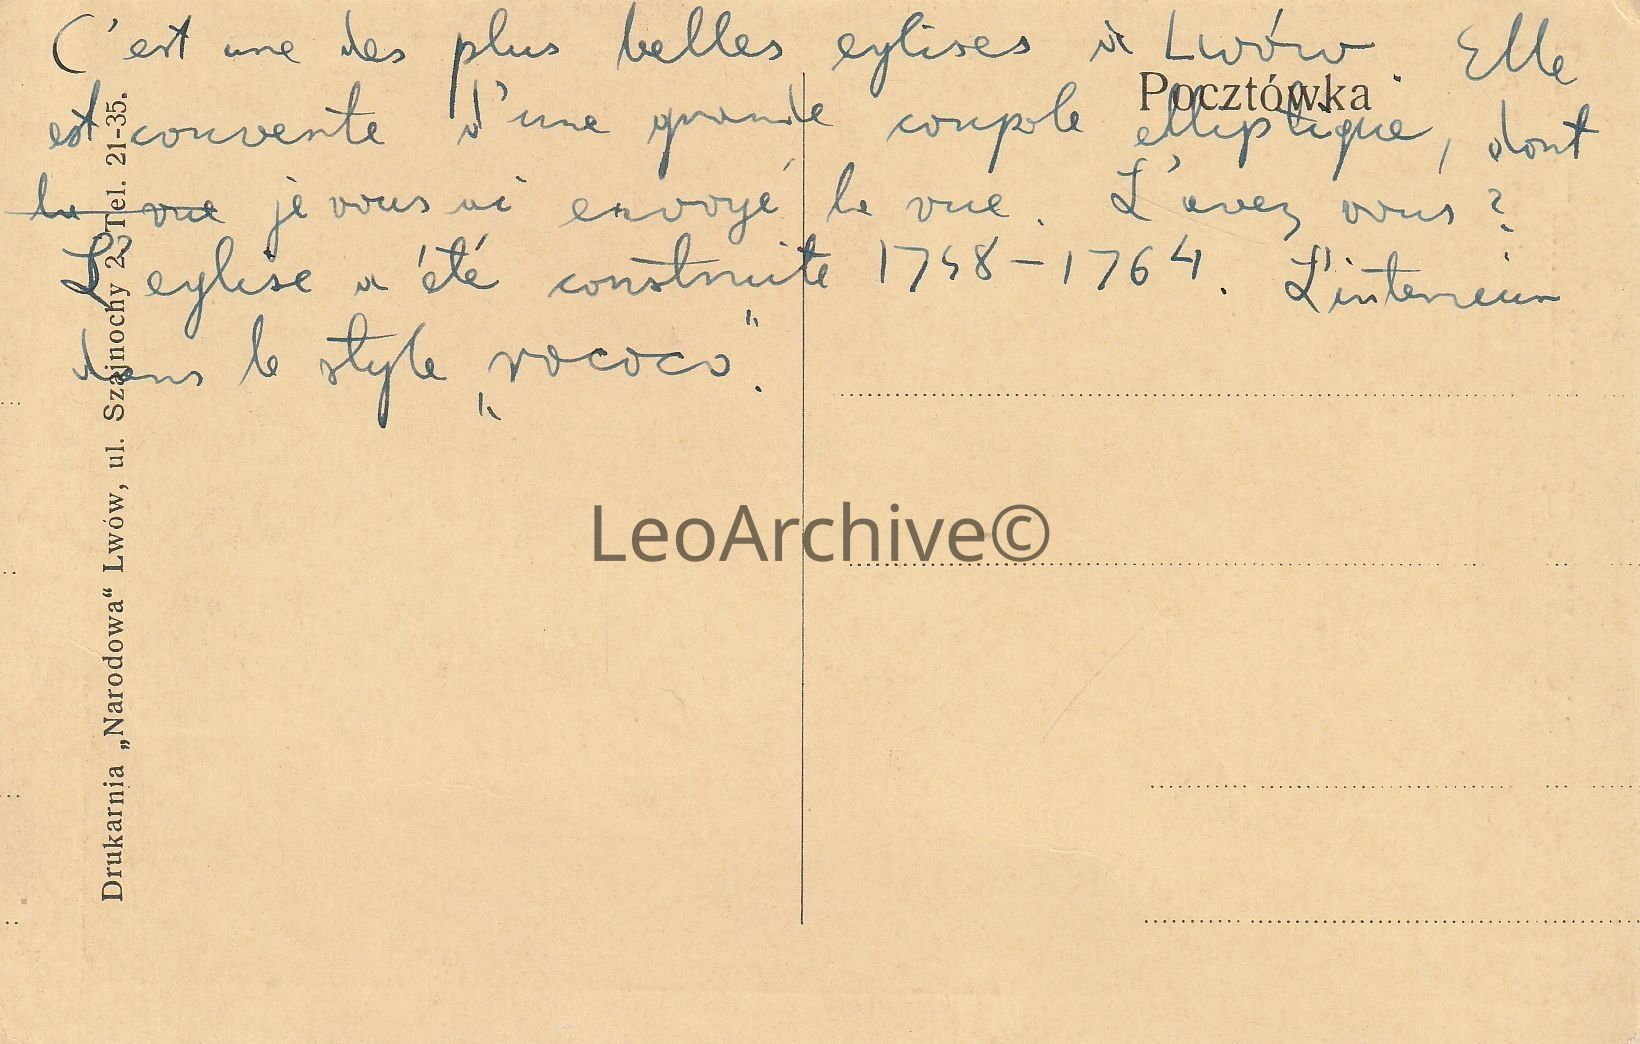 C'est une des plus belles eglises à Lwów. Elle
est couverte d'une grande coupole elliptique, dont
la vue je vous ai envoyé la vue. L'avez vous?
L'eglise a été construite 1748-1764. L'interieur
dans le style „rococo".
Pocztówka
Drukarnia „Narodowa“ Lwów, ul. Szajnochy 2. Tel. 21-35.
LeoArchive©